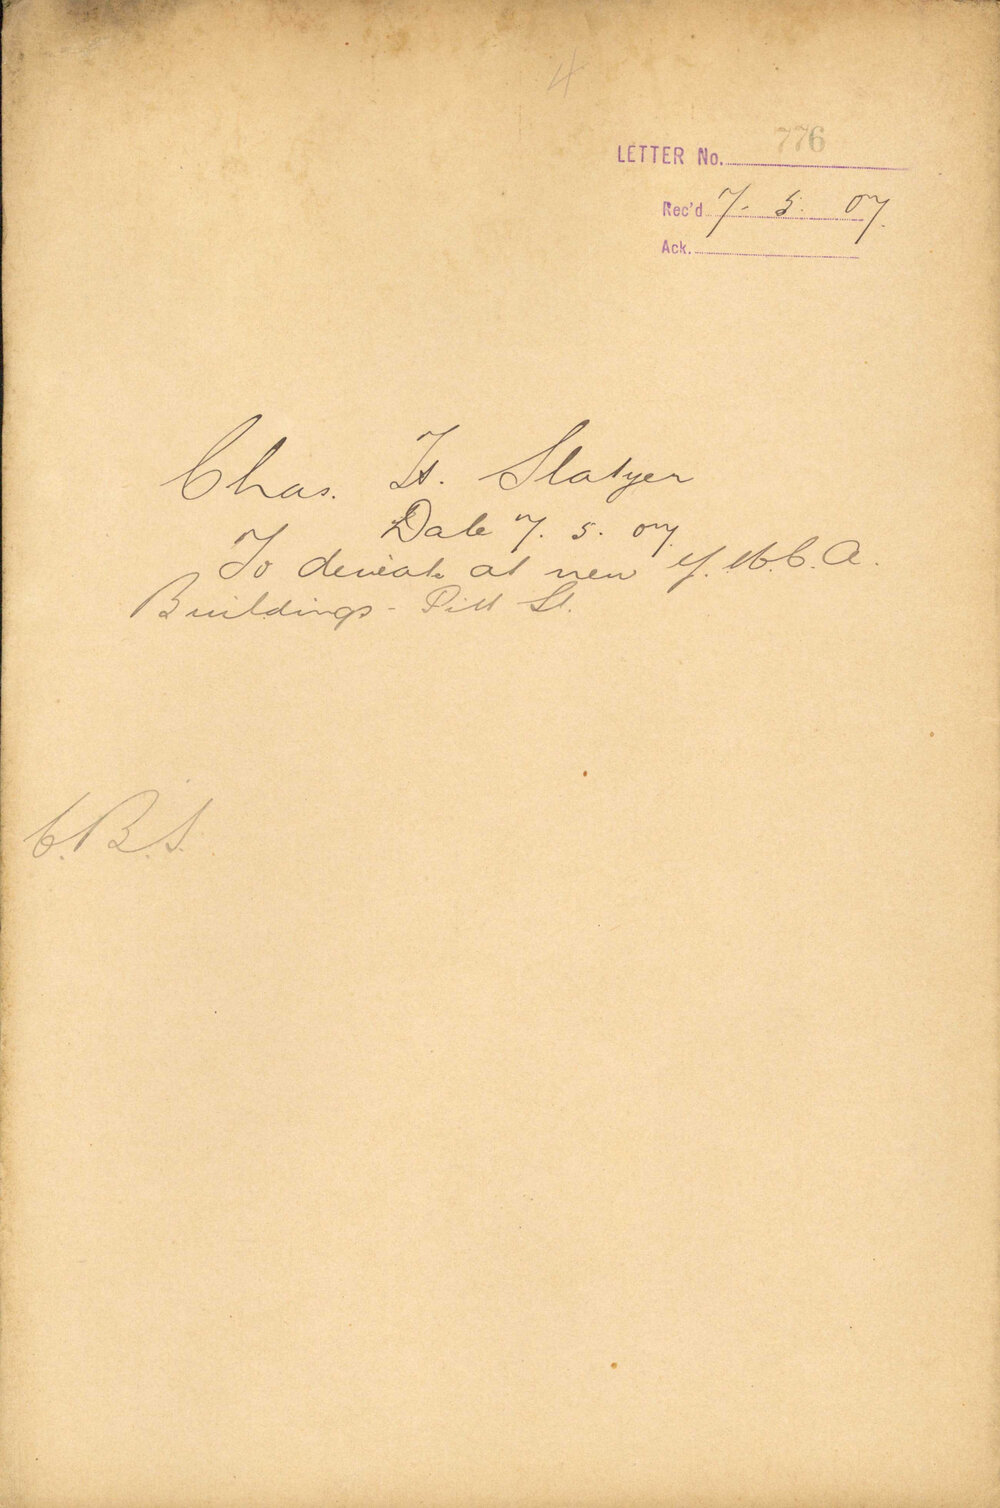 4
LETTER No. 776
Rec'd 7. 5. 07.
Ack.
Chas. H. Slatyer
Date 7. 5. 07.
To deviate at new Y.M.C.A.
Buildings - Pitt St.
C.B.S.